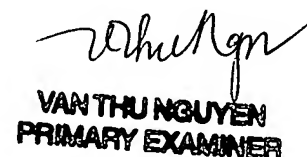 VAN THU NGUYEN
PRIMARY EXAMINER